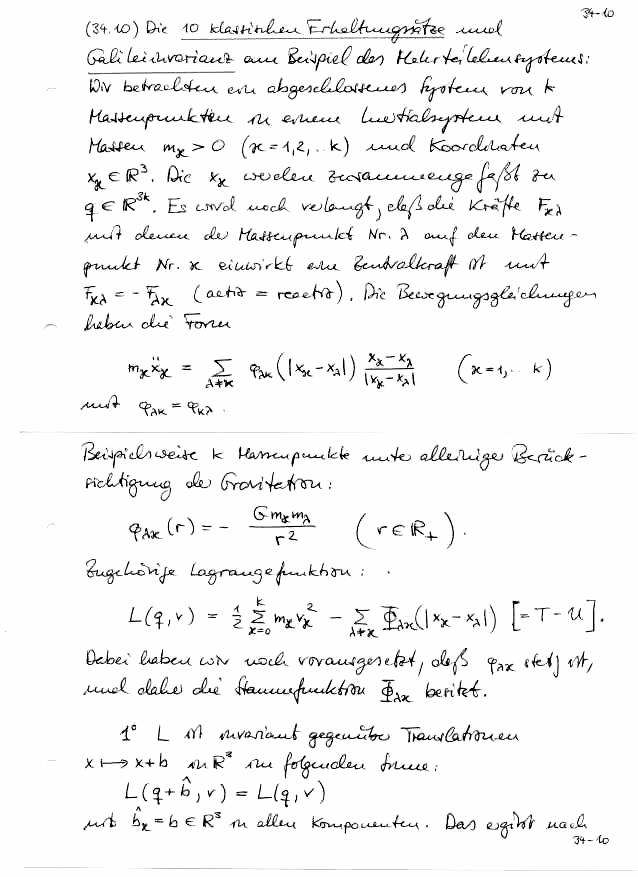 34-10
(34.10) Die 10 klassischen Erhaltungssätze und
Galileiinvarianz am Beispiel des Mehrteilchensystems:
Wir betrachten ein abgeschlossenes System von k
Massenpunkten in einem Inertialsystem mit
Massen m_ϰ > 0 (ϰ = 1,2,..k) und Koordinaten
x_ϰ ∈ ℝ³. Die x_ϰ werden zusammengefaßt zu
q ∈ ℝ^{3k}. Es wird noch verlangt, daß die Kräfte F_{ϰλ}
mit denen der Massenpunkt Nr. λ auf den Massen-
punkt Nr. ϰ einwirkt eine Zentralkraft ist mit
F_{ϰλ} = - F_{λϰ} (actio = reactio). Die Bewegungsgleichungen
haben die Form
m_ϰ ẍ_ϰ = Σ_{λ≠ϰ} φ_{λϰ}(|x_ϰ - x_λ|) (x_ϰ - x_λ)/|x_ϰ - x_λ| (ϰ = 1,.. k)
mit φ_{λϰ} = φ_{ϰλ}.
Beispielsweise k Massenpunkte unter alleiniger Berück-
sichtigung der Gravitation:
φ_{λϰ}(r) = - G m_ϰ m_λ / r² (r ∈ ℝ₊).
Zugehörige Lagrangefunktion:
L(q,v) = ½ Σ_{ϰ=0}^{k} m_ϰ v_ϰ² - Σ_{λ≠ϰ} Φ_{λϰ}(|x_ϰ - x_λ|) [= T - U].
Dabei haben wir noch vorausgesetzt, daß φ_{λϰ} stetig ist,
und daher die Stammfunktion Φ_{λϰ} besitzt.
1° L ist invariant gegenüber Translationen
x ↦ x + b in ℝ³ im folgenden Sinne:
L(q + b̂, v) = L(q, v)
mit b̂_ϰ = b ∈ ℝ³ in allen Komponenten. Das ergibt nach
34-10